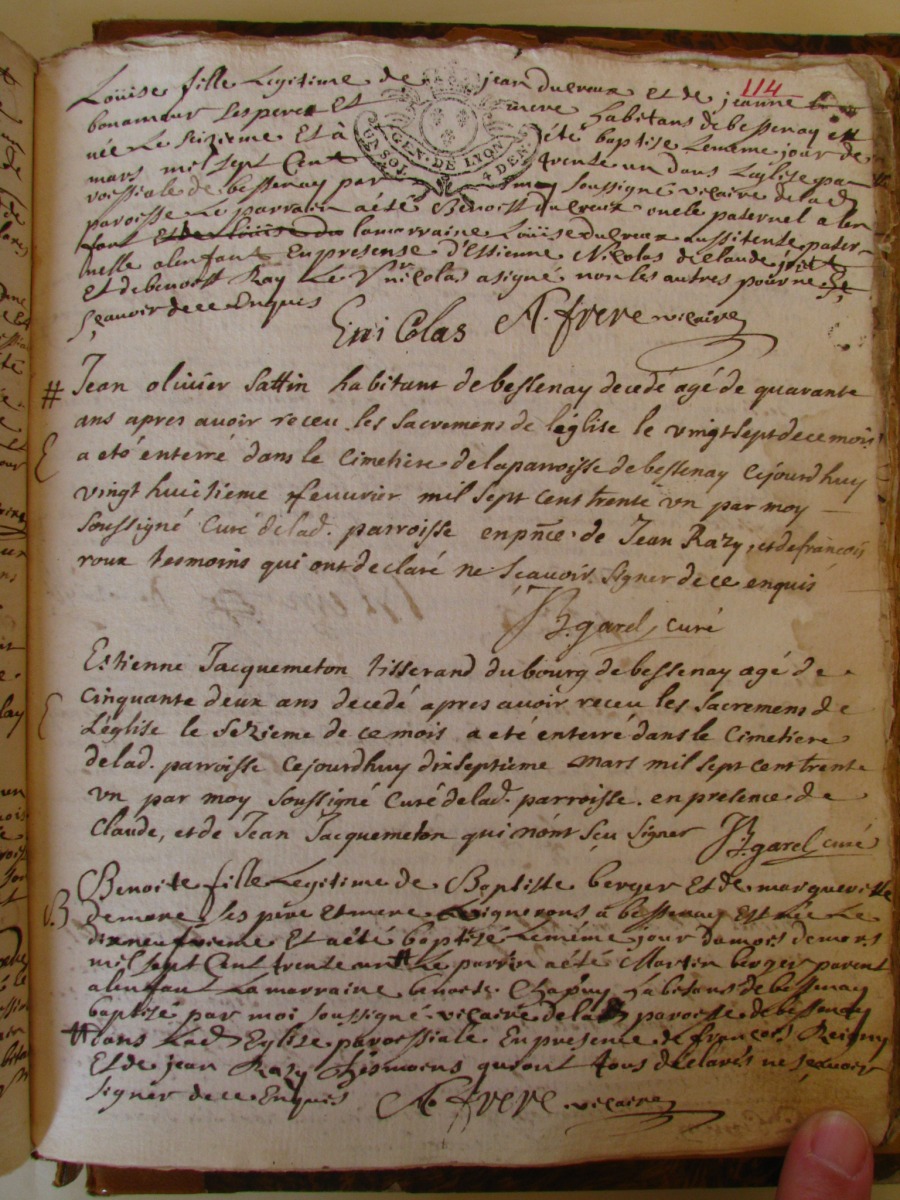 114
Loüise fille Legitime de jean ducreux et de jeanne
bonamour ses pere Et mere habitans de bessenay est
née Le seizieme Et à été baptisé Le meme jour de
mars mil sept Cent trente un dans L'eglise pa
roissiale de bessenay par moy soussigné vicaire de lad
paroisse Le parrain a été Benoist ducreux oncle paternel a len
fant la marraine Loüise ducreux aussi tente pater
nelle a l'enfant En presense d'Estienne Nicolas de Claude
Et de benoist Ray Le nicolas a signé non les autres pour ne
sçauoir de ce Enquis
GEN·DE LYON
UN SOL 4 DEN
E nicolas A. frere vicaire
# Jean olivier Sattin habitant de bessenay decedé agé de quarante
ans apres avoir receu les sacremens de l'église le vingt sept de ce mois
a eté enterré dans le Cimetiere de la parroisse de bessenay Cejourdhuy
vingt huitieme feuvrier mil sept cens trente vn par moy
soussigné Curé de lad. parroisse en pñce de Jean Razy, et de francois
roux tesmoins qui ont declaré ne sçauoir signer de ce enquis
garel, curé
Estienne Jacquemeton tisserand du bourg de bessenay agé de
Cinquante deux ans decedé apres avoir receu les sacremens de
L'église le sezieme de ce mois a eté enterré dans le Cimetiere
de lad. parroisse Cejourdhuy dixseptieme mars mil sept cent trente
vn par moy soussigné Curé de lad. parroisse. en presence de
Claude, et de Jean Jacquemeton qui n'ont sçu signer garel curé
B Benoite fille Legitime de Baptiste berger Et de margueritte
demare ses père Et mere vignerons a bessenay Est née Le
dixneufvieme Et a été baptisé Le méme jour du mois de mars
mil sept Cent trente un # Le parrin a été Martin berger parent
a lenfant La marraine benoite Chapuy habitans de bessenay
baptisé par moi soussigné vicaire de lad paroisse de bessenay
# dans Lad Eglise paroissiale En presence de françois Reigny
Et de jean Razy tesmoins qui ont tous declarés ne sçavoir
signer de ce Enquis A frere vicaire